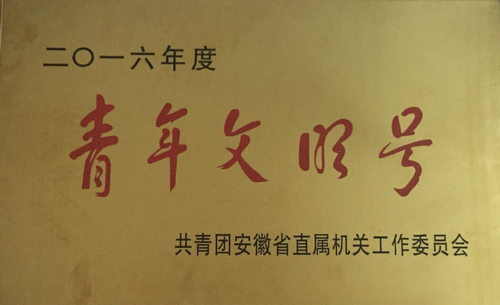 二〇一六年度
青年文明号
共青团安徽省直属机关工作委员会